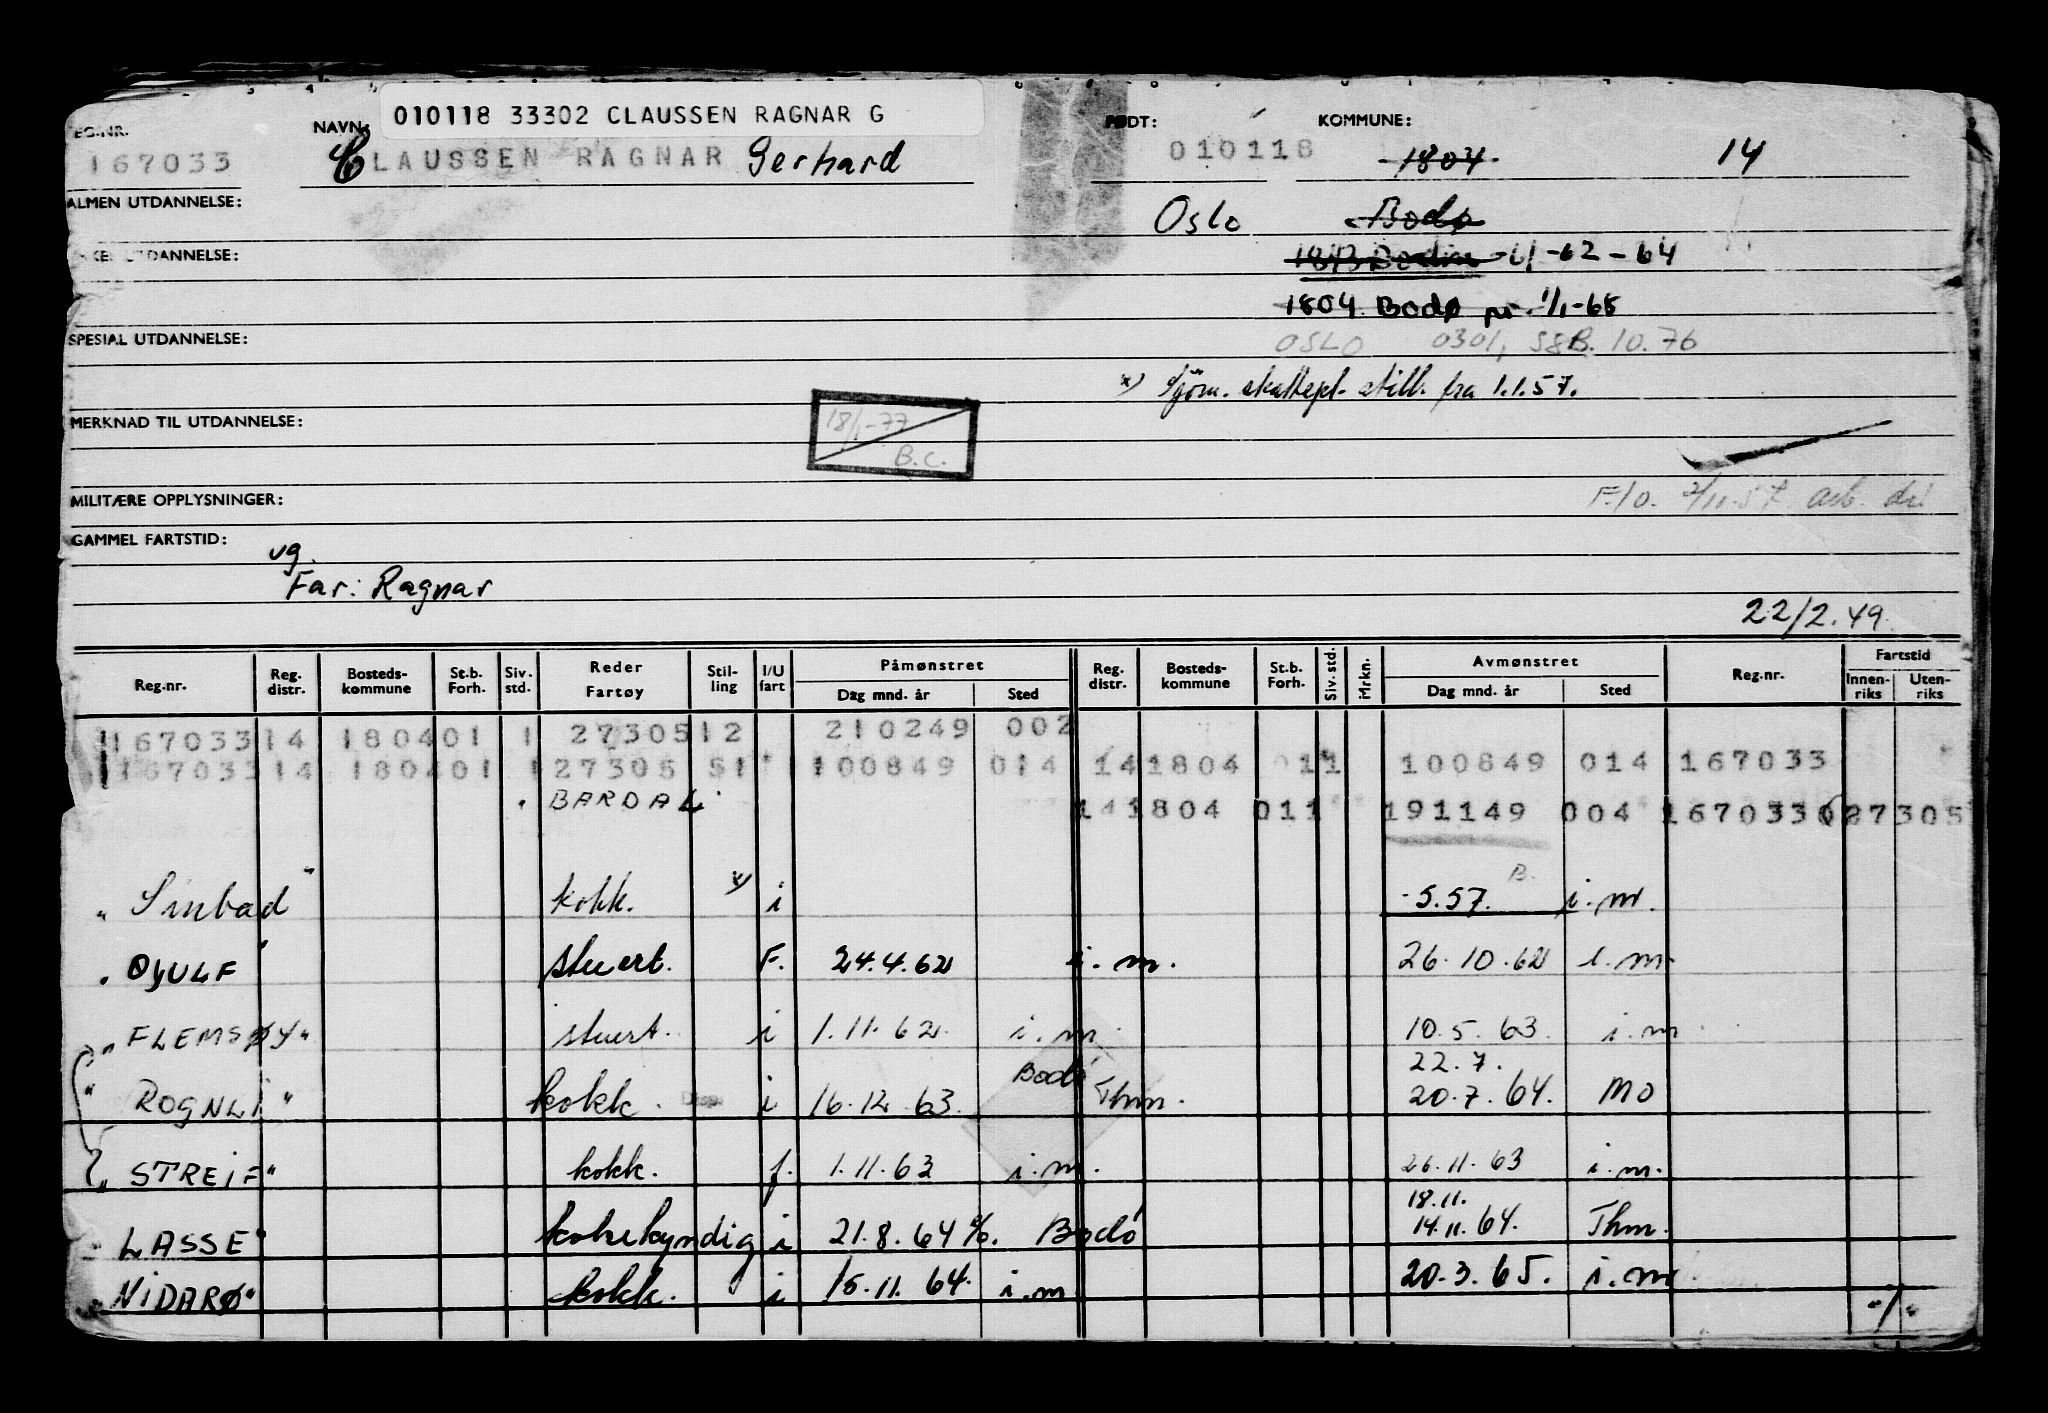 010118 33302 CLAUSSEN RAGNAR G
REG.NR. NAVN: FØDT: KOMMUNE:
167033 CLAUSSEN RAGNAR Gerhard 010118 1804 14
ALMEN UTDANNELSE: Oslo Bodø
UTDANNELSE: 1843 Bodin -62-64
1804 Bodø pr. 1/1-68
SPESIAL UTDANNELSE: OSLO 0301, SSB. 10.76
x) Sjøm. skattepl. still. fra 1.1.57.
MERKNAD TIL UTDANNELSE: 18/1-77
B.C.
MILITÆRE OPPLYSNINGER: F.10. 2/11-57
GAMMEL FARTSTID:
vg.
Far: Ragnar
22/2.49
Reg.nr. Reg. distr. Bosteds-kommune St.b. Forh. Siv. std. Reder Fartøy Stil-ling I/U fart Påmønstret Dag mnd. år Sted Reg. distr. Bosteds-kommune St.b. Forh. Siv. std. Mrkn. Avmønstret Dag mnd. år Sted Reg.nr. Fartstid Innen-riks Uten-riks
167033 14 1804 01 1 27305 12 210249 002
167033 14 1804 01 1 27305 51 100849 014 14 1804 01 1 1 100849 014 167033
BARDAL 14 1804 01 1 191149 004 167033 27305
"Sinbad" kokk. x) i -5.57. B. i.m.
"OYULF" stuert. F. 24.4.62 i.m. 26.10.62 i.m.
"FLEMSØY" stuert. i 1.11.62 i.m. 10.5.63. i.m.
22.7.
"ROGNLI" kokk. Disp. i 16.12.63. Bodø Thm. 20.7.64. MO
"STREIF" kokk. f. 1.11.63 i.m. 26.11.63 i.m.
18.11.
"LASSE" kokekyndig i 21.8.64 Bodø 14.11.64. Thm.
"NIDARØ" kokk. i 15.11.64. i.m 20.3.65. i.m.
-/-